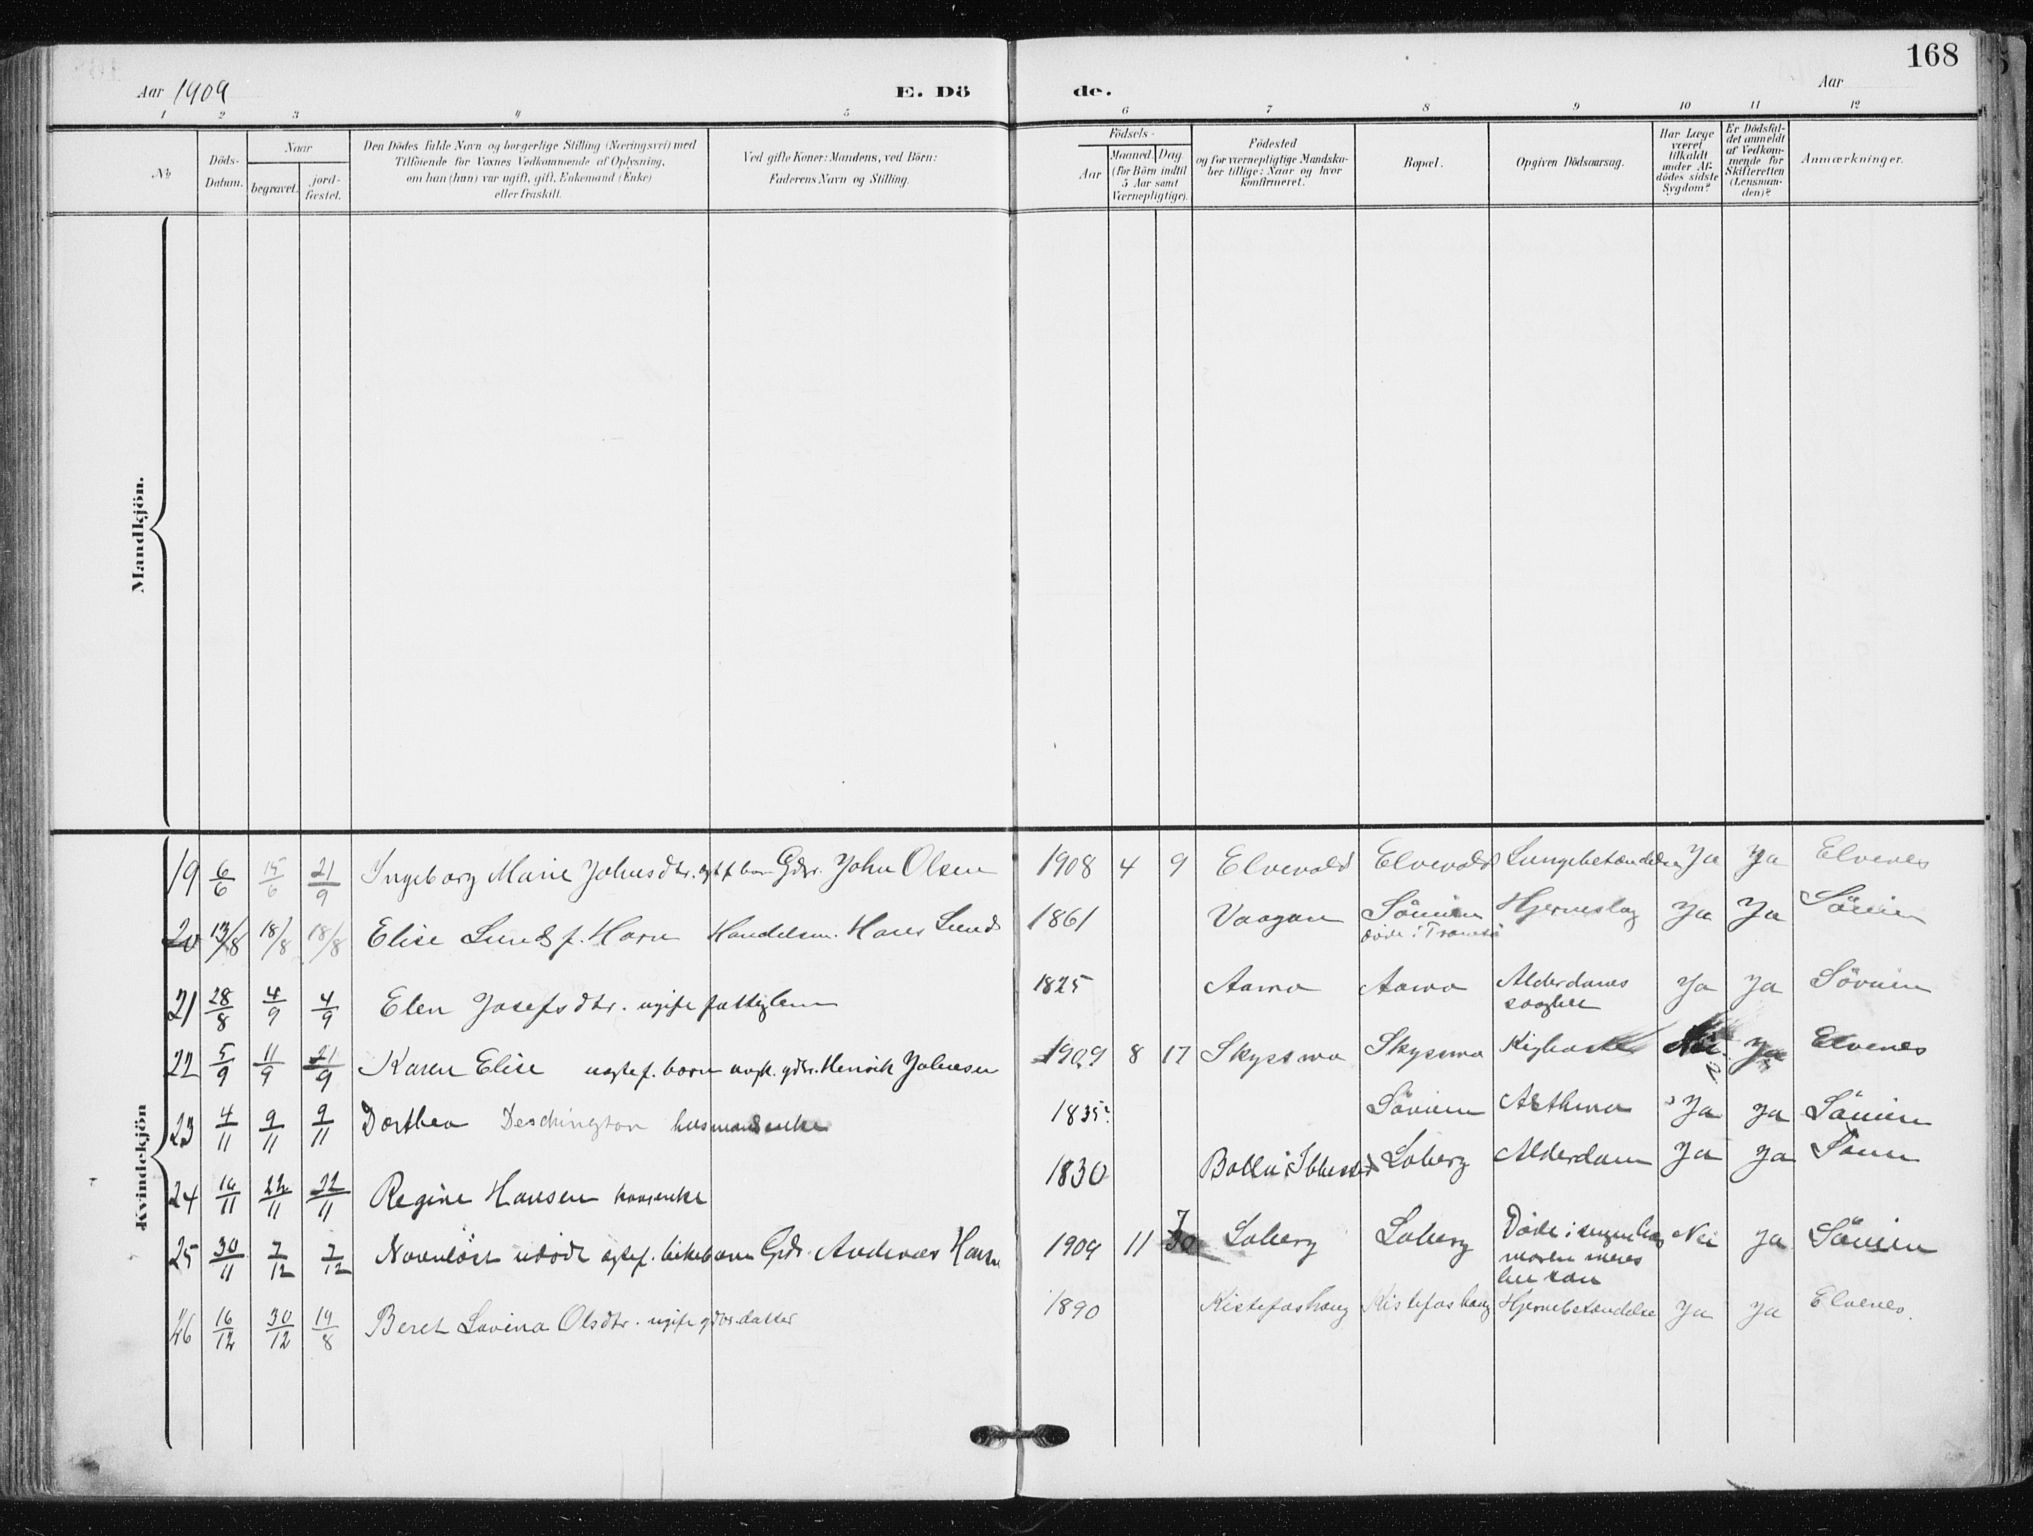 168
Aar 1909 E. Dö de. Aar
1 2 3 4 5 6 7 8 9 10 11 12
№
Döds-
Datum.
Naar
begravet.
jord-
fæstet.
Den Dödes fulde Navn og borgerlige Stilling (Næringsvei) med
Tilföiende for Voxnes Vedkommende af Oplysning,
om han (hun) var ugift, gift, Enkemand (Enke)
eller fraskilt.
Ved gifte Koner: Mandens, ved Börn:
Faderens Navn og Stilling.
Födsels-
Aar
Maaned. Dag
(for Börn indtil
5 Aar samt
Værnepligtige).
Födested
og for værnepligtige Mandska-
ber tillige: Naar og hvor
konfirmeret.
Bopæl.
Opgiven Dödsaarsag.
Har Læge
været
tilkaldt
under Af-
dödes sidste
Sygdom?
Er Dödsfal-
det anmeldt
af Vedkom-
mende for
Skifteretten
(Lensman-
den)?
Anmærkninger.
Mandkjön.
Kvindekjön
19 6/6 15/6 21/9 Ingeborg Marie Johnsdtr. Gdr. John Olsen 1908 4 9 Elvevold Elvevold Lungebetændelse Ja Ja Elvenes
20 /8 18/8 18/8 Elise Lund f. Horn Handelsm. Hans Lund 1861 Vaagan Hjerneslag Ja Ja
døde i Tromsø
21 28/8 4/9 4/9 Elen Josefsdtr. ugift fattiglem 1825 Aamo Aamo Alderdoms Ja Ja Sövein
22 5/9 11/9 21/9 Karen Elise uegtef. barn ungk. gdr. Henrik Johnsen 1909 8 17 Skyssmo Skyssmo Kighoste Nei Ja Elvenes
23 4/11 9/11 9/11 Dorthea Deschington husmandsenke 1835? Asthma Ja Ja
24 16/11 22/11 22/11 Regine Hansen 1830 Loberg Alderdom Ja Ja
25 30/11 7/12 7/12 udödt egtef. Gdr. Andreas Hansen 1909 11 30 Loberg Loberg Døde i Nei Ja
moren
26 16/12 30/12 19/8 Beret Lovina Olsdtr. ugift gdrs datter 1890 Kistefoshaug Kistefoshaug Hjernebetændelse Ja Ja Elvenes.